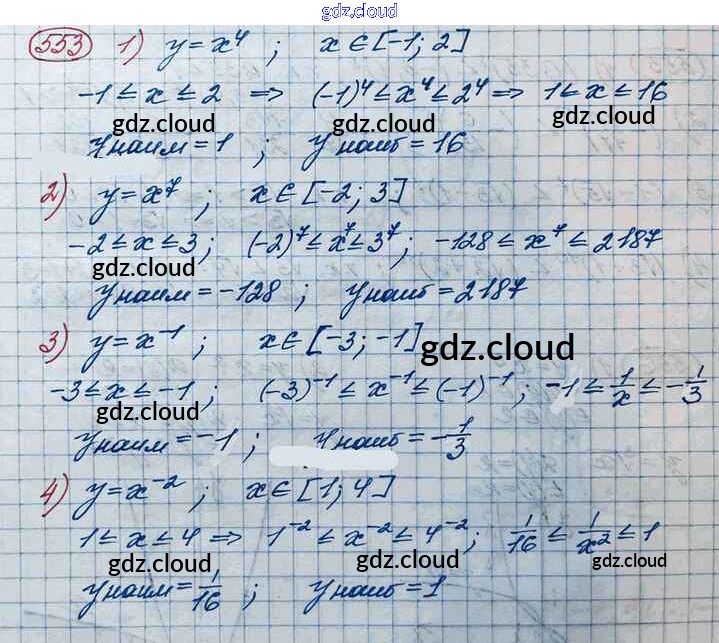 gdz.cloud
gdz.cloud
553 1) y = x⁴ ; x ∈ [-1; 2]
-1 ≤ x ≤ 2 ⇒ (-1)⁴ ≤ x⁴ ≤ 2⁴ ⇒ 1 ≤ x ≤ 16
gdz.cloud gdz.cloud gdz.cloud
y наим = 1 ; y наиб = 16
2) y = x⁷ ; x ∈ [-2; 3]
-2 ≤ x ≤ 3 ; (-2)⁷ ≤ x⁷ ≤ 3⁷ ; -128 ≤ x⁷ ≤ 2187
gdz.cloud gdz.cloud gdz.cloud
y наим = -128 ; y наиб = 2187
3) y = x⁻¹ ; x ∈ [-3; -1]
gdz.cloud
-3 ≤ x ≤ -1 ; (-3)⁻¹ ≤ x⁻¹ ≤ (-1)⁻¹ ; -1 ≤ 1/x ≤ -1/3
gdz.cloud
y наим = -1 ; y наиб = -1/3
4) y = x⁻² ; x ∈ [1; 4]
1 ≤ x ≤ 4 ⇒ 1⁻² ≤ x⁻² ≤ 4⁻² ; 1/16 ≤ 1/x² ≤ 1
gdz.cloud gdz.cloud gdz.cloud
y наим = 1/16 ; y наиб = 1
gdz.cloud gdz.cloud